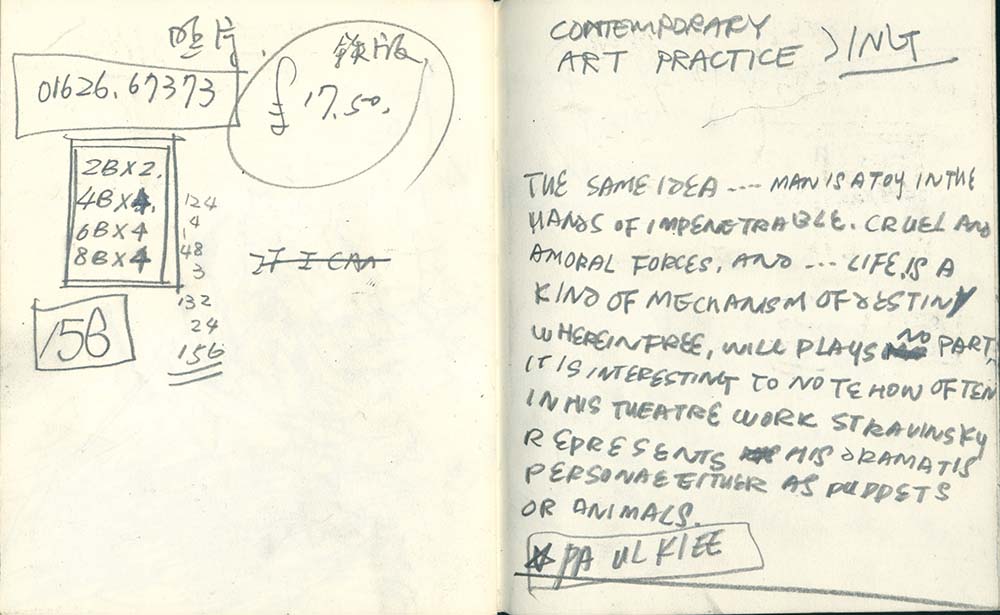 照片.
01626.67373
鋅版.
£17.50.
2B X 2.
4B X 4.
6B X 4
8B X 4
124
4
1
48
3
132
24
156
156
IF I CAN
CONTEMPORARY
ART PRACTICE > ING
THE SAME IDEA .... MAN IS A TOY IN THE
HANDS OF IMPENETRABLE. CRUEL AND
AMORAL FORCES, AND ... LIFE, IS A
KIND OF MECHANISM OF DESTINY
WHEREIN FREE, WILL PLAYS NO PART,
IT IS INTERESTING TO NOTE HOW OFTEN
IN HIS THEATRE WORK STRAVINSKY
REPRESENTS HIS DRAMATIS
PERSONAE EITHER AS PUPPETS
OR ANIMALS.
PAUL KLEE